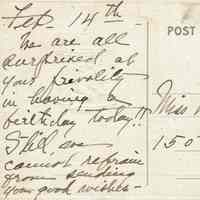 Feb. 14th -
We are all
surprised at
your frivolity
in having a
birthday today!!
Still, we
cannot refrain
from sending
you good wishes -
POST
Miss
150